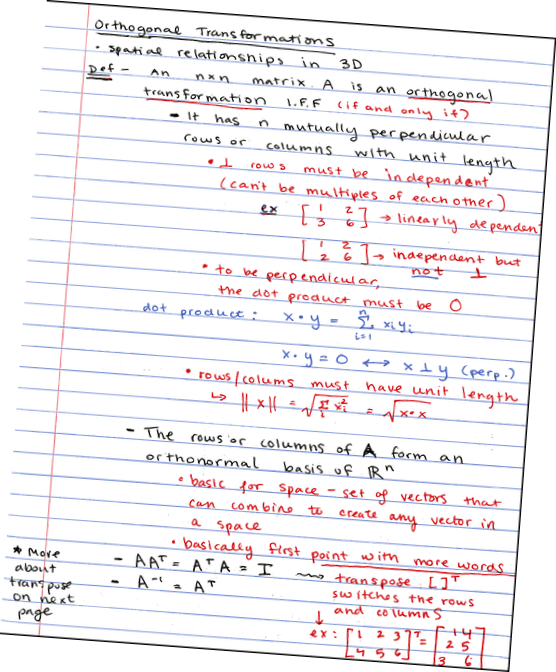 Orthogonal Transformations
• spatial relationships in 3D
Def - An nxn matrix A is an orthogonal
transformation I.F.F (if and only if)
- It has n mutually perpendicular
rows or columns with unit length
• ⊥ rows must be independent
(can't be multiples of each other)
ex [1 2; 3 6] → linearly dependent
[1 2; 2 6] → independent but
not ⊥
• to be perpendicular,
the dot product must be 0
dot product: x•y = Σ_{i=1}^{n} xᵢyᵢ
x•y = 0 ↔ x⊥y (perp.)
• rows/colums must have unit length
↳ ||x|| = √(Σᵢⁿ xᵢ²) = √(x•x)
- The rows or columns of A form an
orthonormal basis of ℝⁿ
• basic for space - set of vectors that
can combine to create any vector in
a space
• basically first point with more words
* More
about
transpose
on next
page
- AAᵀ = AᵀA = I ⇝ transpose [ ]ᵀ
- A⁻¹ = Aᵀ
switches the rows
and columns
↓
ex: [1 2 3; 4 5 6]ᵀ = [1 4; 2 5; 3 6]